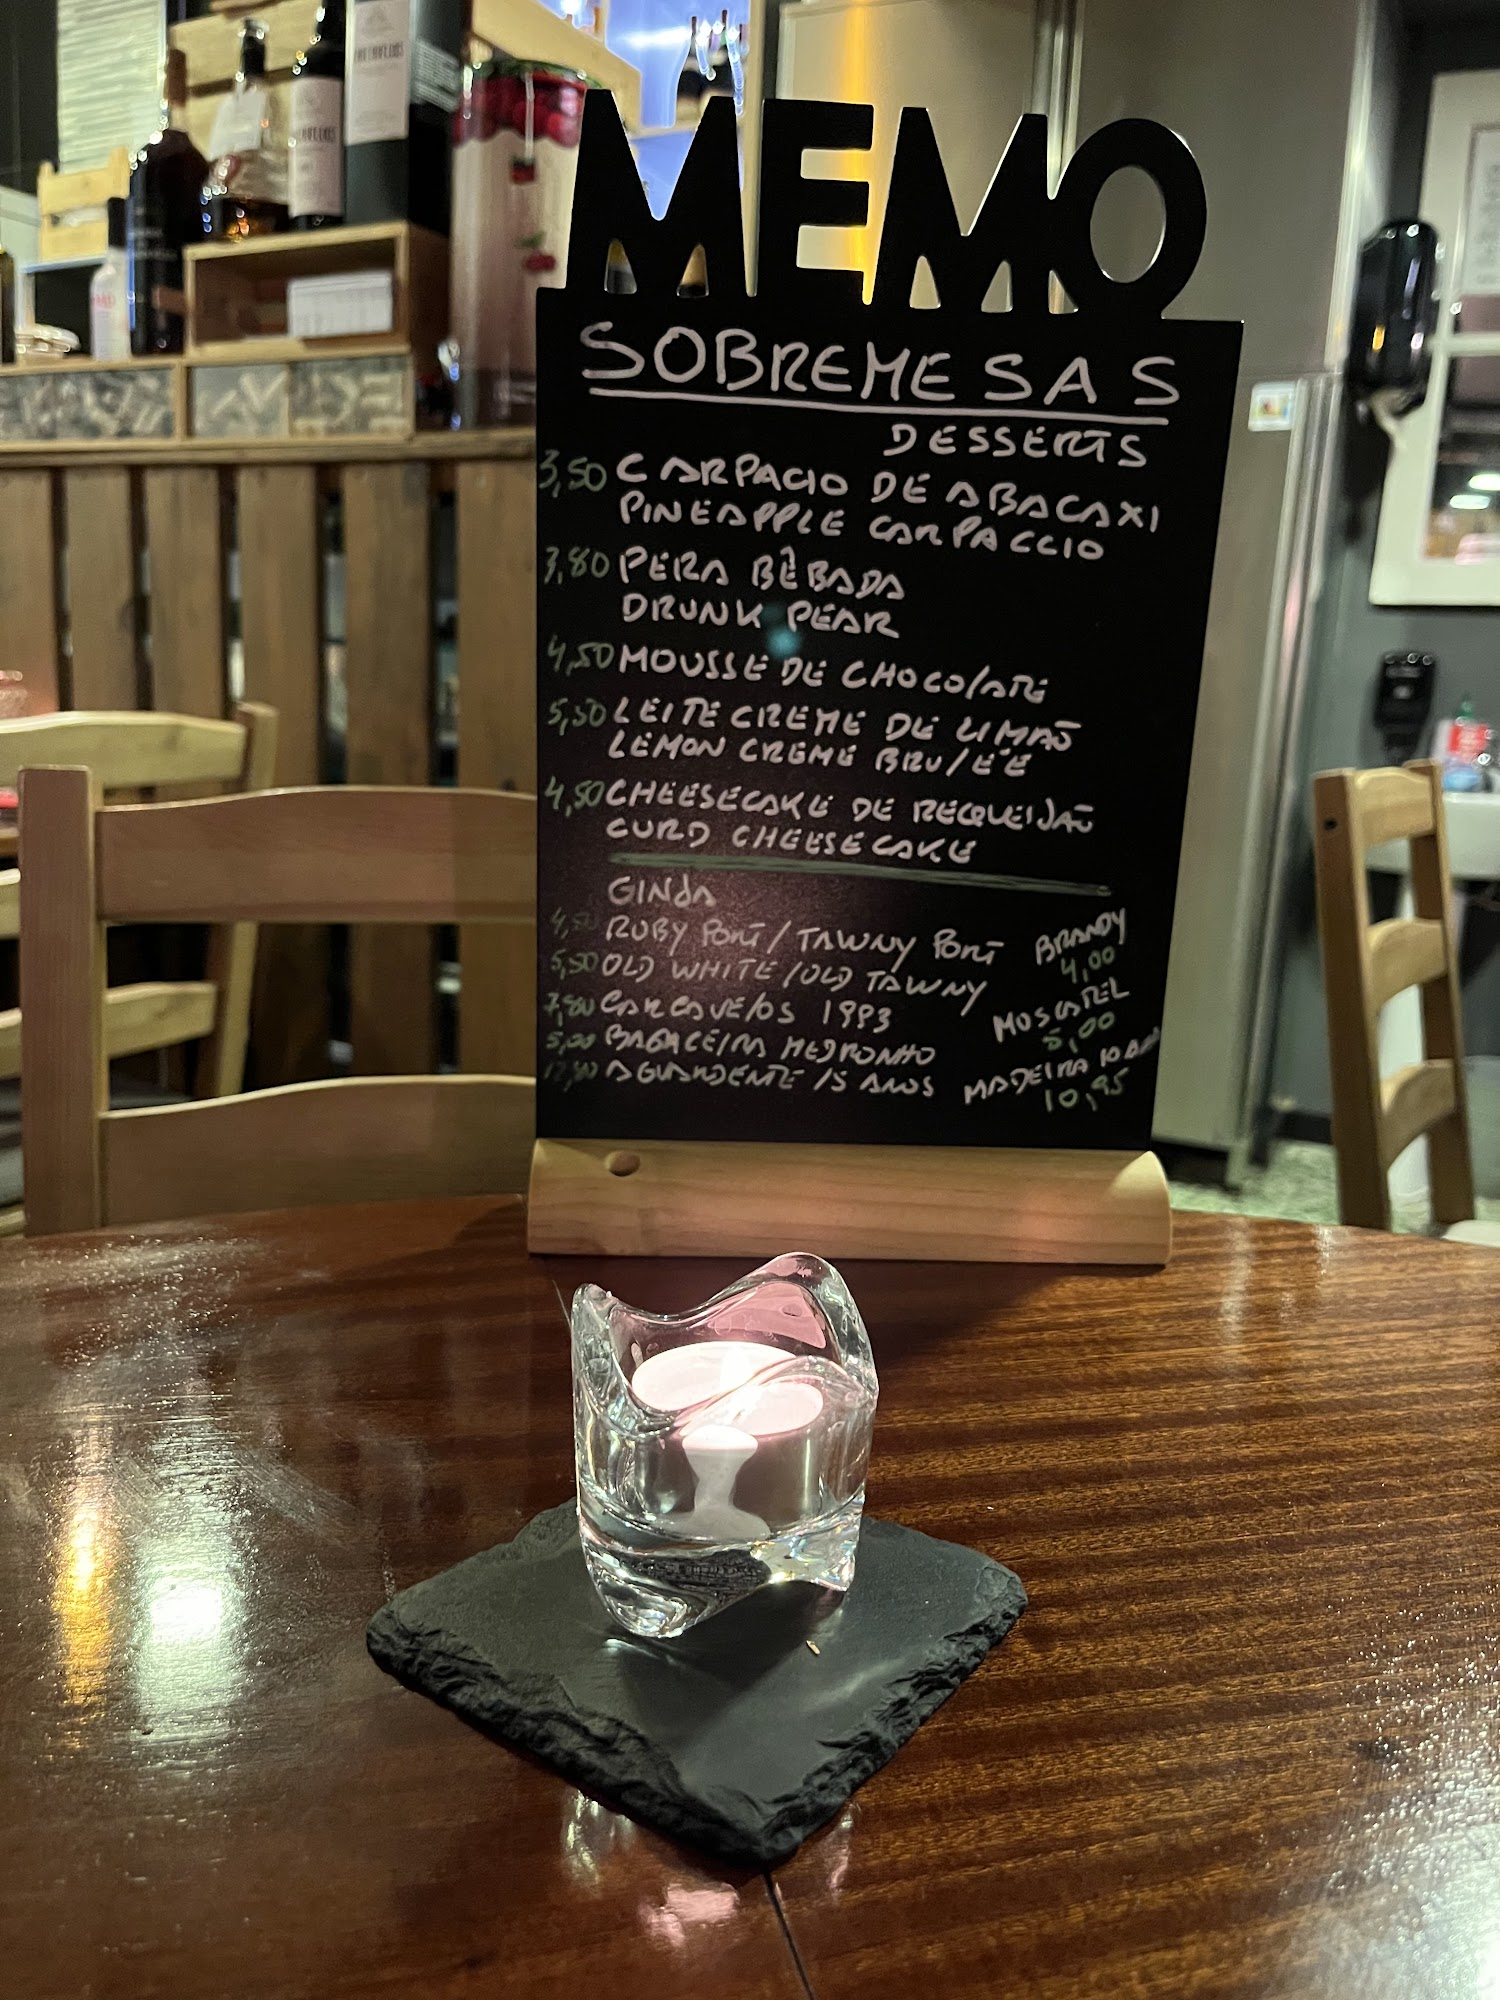 MEMO
SOBREMESAS
DESSERTS
3,50 CARPACIO DE ABACAXI
PINEAPPLE CARPACCIO
3,80 PERA BÊBADA
DRUNK PEAR
4,50 MOUSSE DE CHOCOLATE
5,50 LEITE CREME DE LIMÃO
LEMON CREME BRULÉE
4,50 CHEESECAKE DE REQUEIJÃO
CURD CHEESECAKE
GINJA
RUBY PORT / TAWNY PORT
5,50 OLD WHITE / OLD TAWNY
CARCAVELOS 1993
5,00 BAGACEIRA MEDRONHO
AGUARDENTE 15 ANOS
BRANDY
4,00
MOSCATEL
5,00
MADEIRA 10
10,95